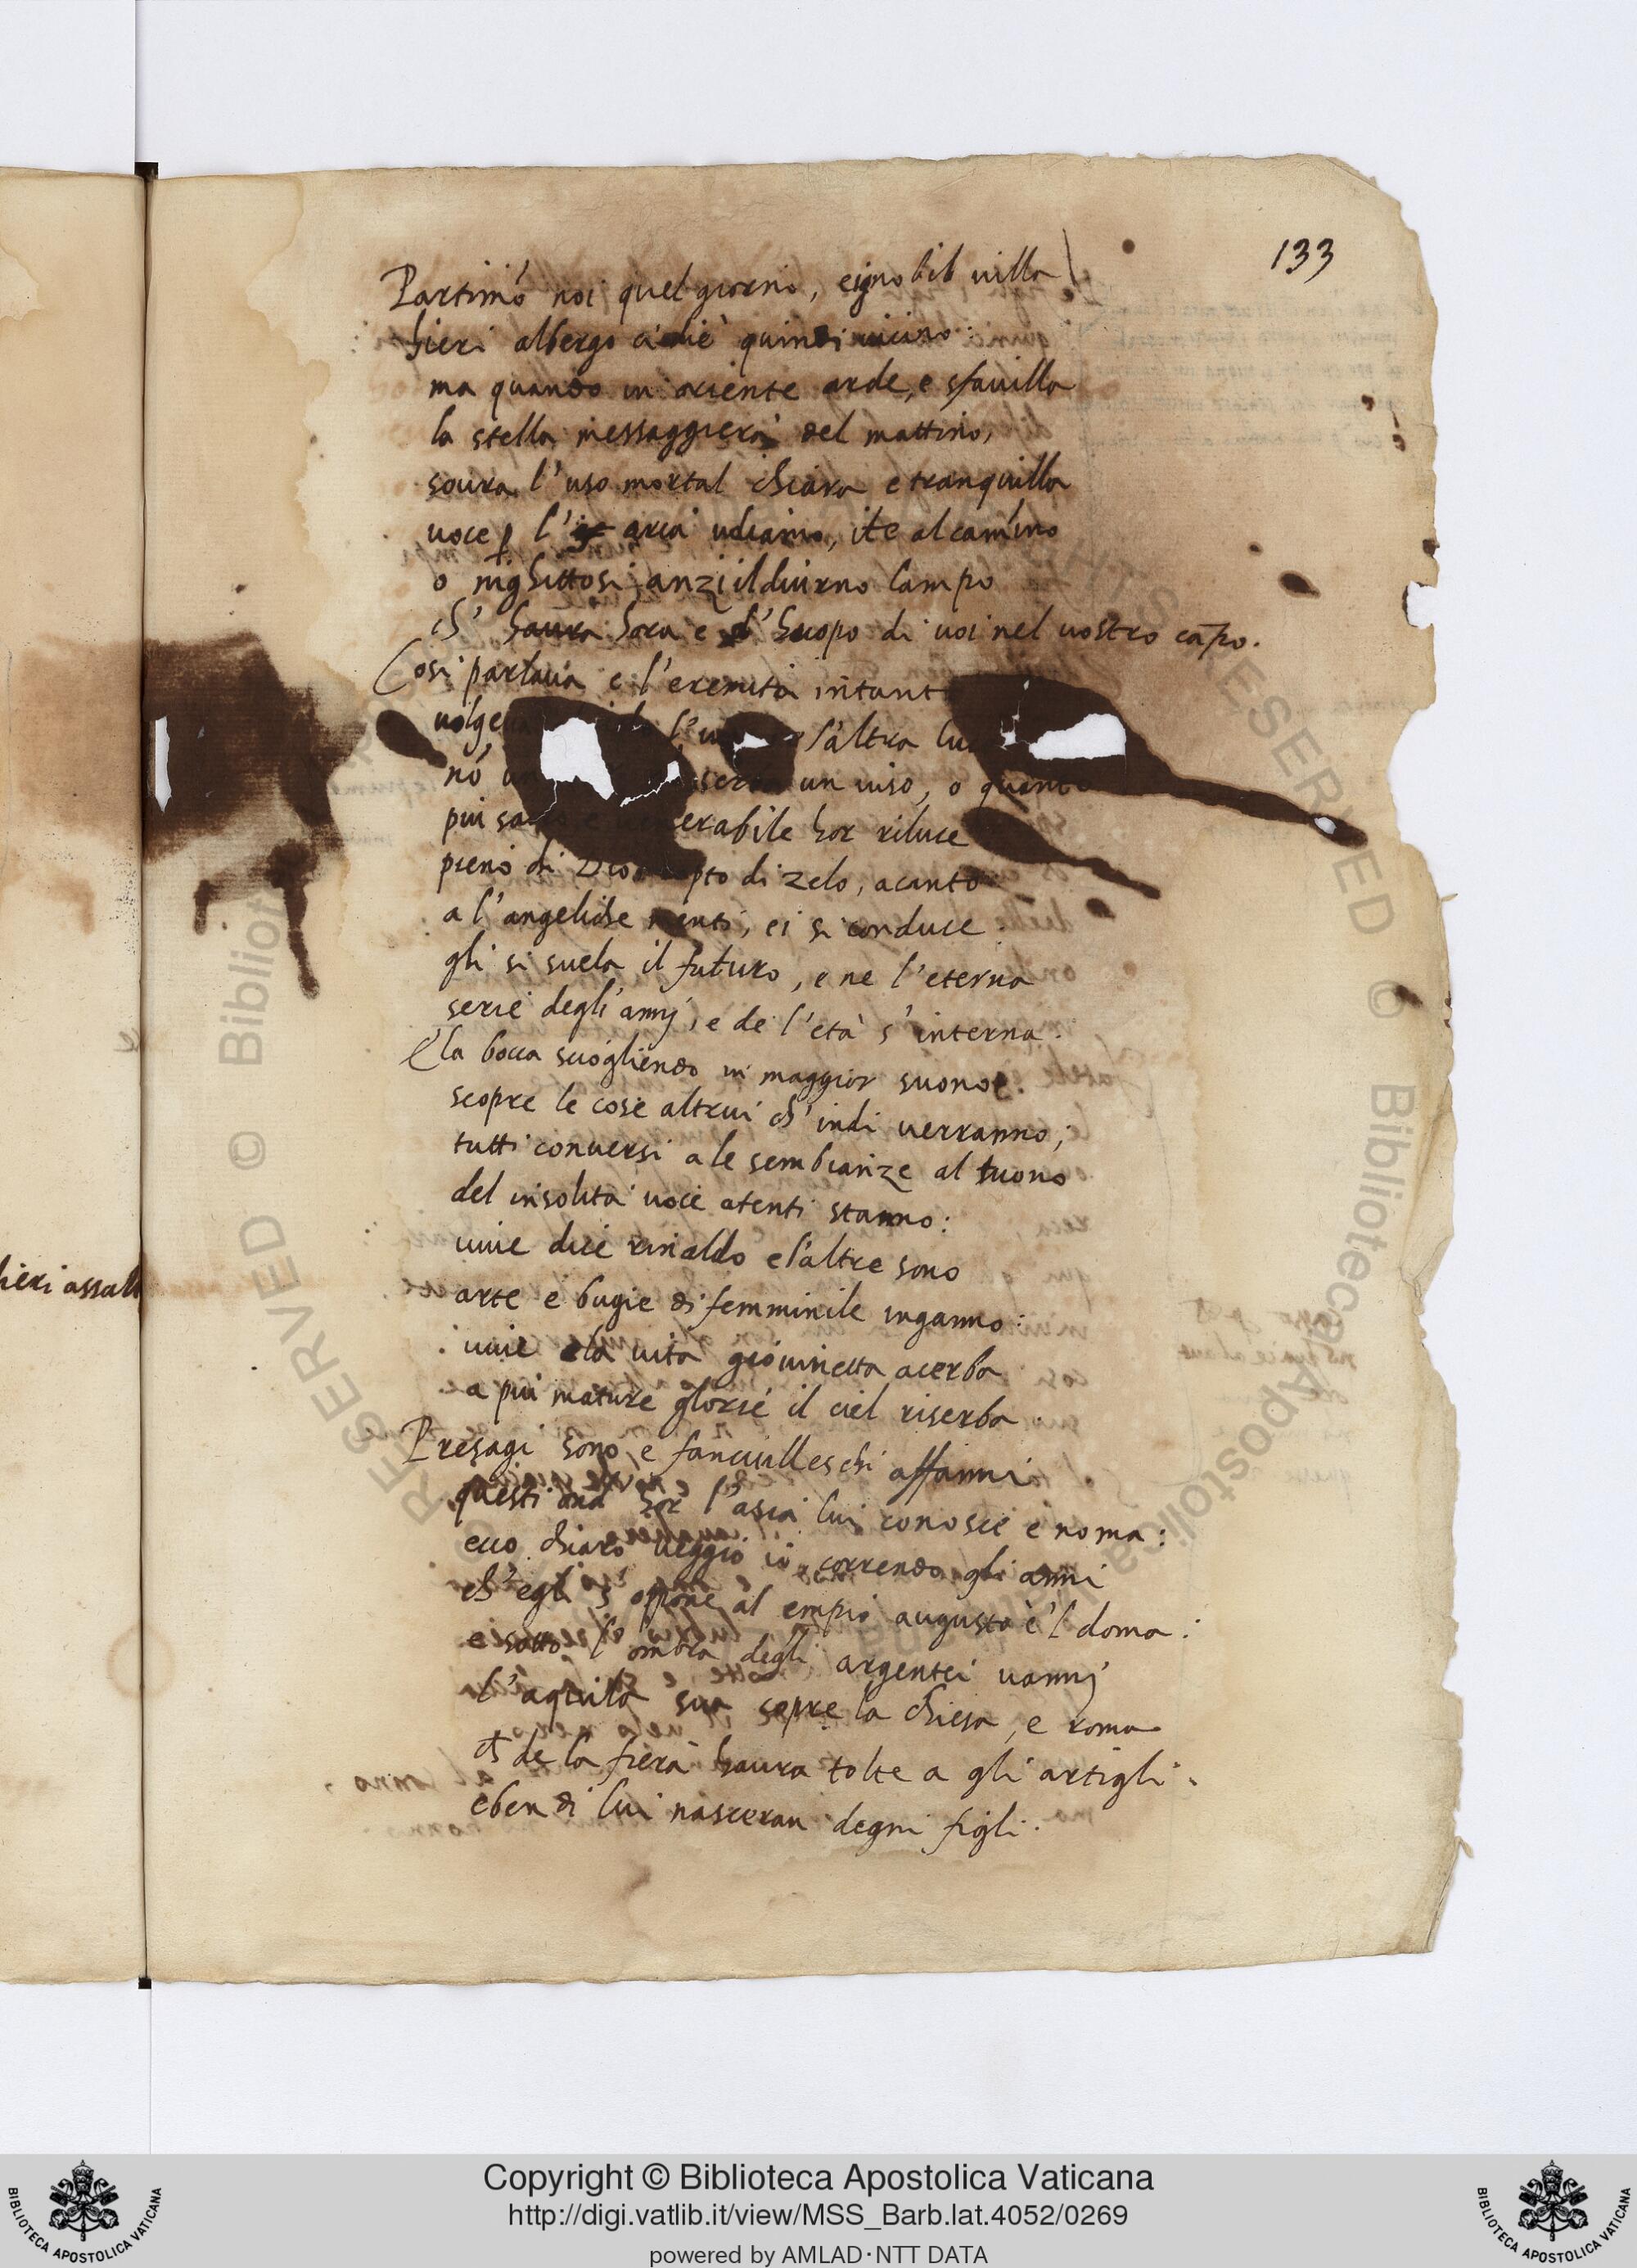 133
Partimo noi quel giorno, e ignobil uilla
hieri albergo ci diè quindi uicino:
ma quando in oriente arde, e sfauilla
la stella messaggiera del mattino,
soura l'uso mortal chiara e tranquilla
uoce p l' aria udiamo, ite al camino
o nighittosi anzi il diurno lampo
ch' haura hora e l'huopo di uoi nel uostro cāpo.
Cosi parlaua e l'eremita intant
uolge l'u l'altra luc
nō un un uiso, o quant
piu sa erabile hor riluce
pieno di Dio pto di zelo, acanto
a l'angeliche menti, ei si conduce:
gli si suela il futuro, e ne l'eterna
serie degl'annj, e de l'età s'interna.
E la bocca sciogliendo in maggior suono
scopre le cose altrui ch'indi uerranno;
tutti conuersi a le sembianze al tuono
del insolita uoce atenti stanno:
uiue dice rinaldo e l'altre sono
arte e bugie di femminile inganno:
uiue e la uita giouinetta acerba
a piu mature glorie il ciel riserba.
Presagi sono e fanciulleschi affanni
questi ond' hor l'asia lui conosce e noma:
ecco chiaro ueggio io correndo gli anni
ch'egli s'oppone al empio augusto e'l doma:
e sotto l'ombra degli argentei uannj
l'aquila sua copre la chiesa, e roma
ch de la fiera haura tolte a gli artigli.
e ben di lui nasceran degni figli.
hieri assal
Copyright © Biblioteca Apostolica Vaticana
http://digi.vatlib.it/view/MSS_Barb.lat.4052/0269
powered by AMLAD·NTT DATA
BIBLIOTECA APOSTOLICA VATICANA
BIBLIOTECA APOSTOLICA VATICANA